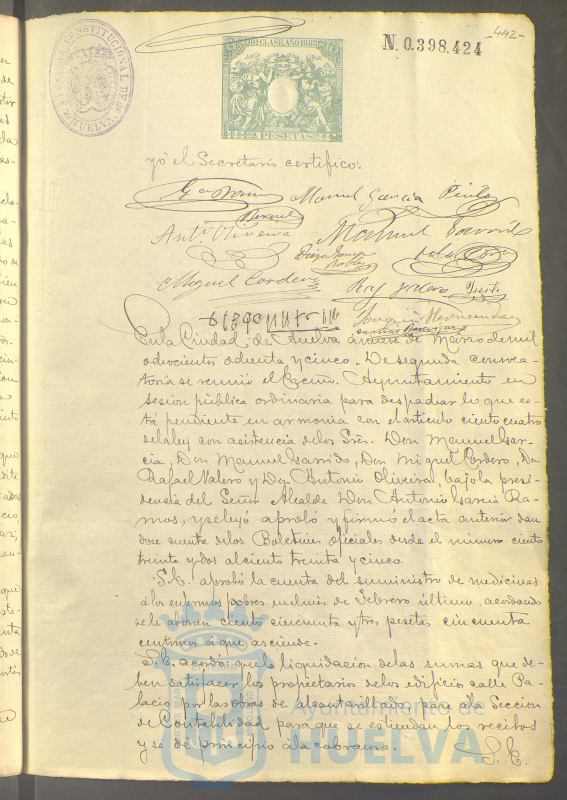 -442-
N. 0.398.424
CONSTITUCIONAL DE HUELVA
CLASE AÑO 1885
2 PESETAS
yó el Secretario certifico:
Manuel García
Antº Oliveira Manuel Garrido
Diego
Miguel Cordero
Joaquin Hernandez
En la Ciudad de Huelva á nueve de Marzo de mil
ochocientos ochenta y cinco. De segunda convoca-
toria se reunió el Excmo. Ayuntamiento en
sesion pública ordinaria para despachar lo que es-
tá pendiente en armonia con el articulo ciento cuatro
de la ley con asistencia de los Sres. Don Manuel Gar-
cia, Don Manuel Garrido, Don Miguel Cordero, Don
Rafael Valero y Don Antonio Oliveira, bajo la presi-
dencia del Señor Alcalde Don Antonio Garcia Ra-
mos, y se leyó aprobó y firmó el acta anterior dan
dose cuenta de los Boletines oficiales desde el número ciento
treinta y dos al ciento treinta y cinco.
S.E. aprobó la cuenta del suministro de medicinas
á los enfermos pobres en el mes de Febrero último, acordando
se le abonen ciento cincuenta y tres pesetas cincuenta
centimos á que asciende.
S.E. acordó: que la liquidacion de las sumas que de-
ben satisfacer los propietarios de los edificios calle Pa-
lacio por las obras de alcantarillado, pase á la Seccion
de Contabilidad para que se estiendan los recibos
y se dé principio á la cobranza. S.E.
Ayuntamiento de
HUELVA